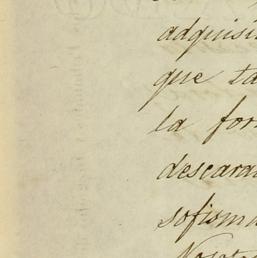 adquisi
que ta
la for
descara
sofism
Nosot